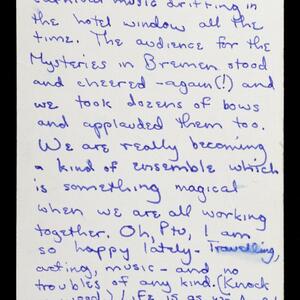 carnival music drifting in
the hotel window all the
time. The audience for the
Mysteries in Bremen stood
and cheered - again(!) and
we took dozens of bows
and applauded them too.
We are really becoming
a kind of ensemble which
is something magical
when we are all working
together. Oh, Ptv, I am
so happy lately - Travelling,
acting, music - and no
troubles of any kind. (Knock
Life is as